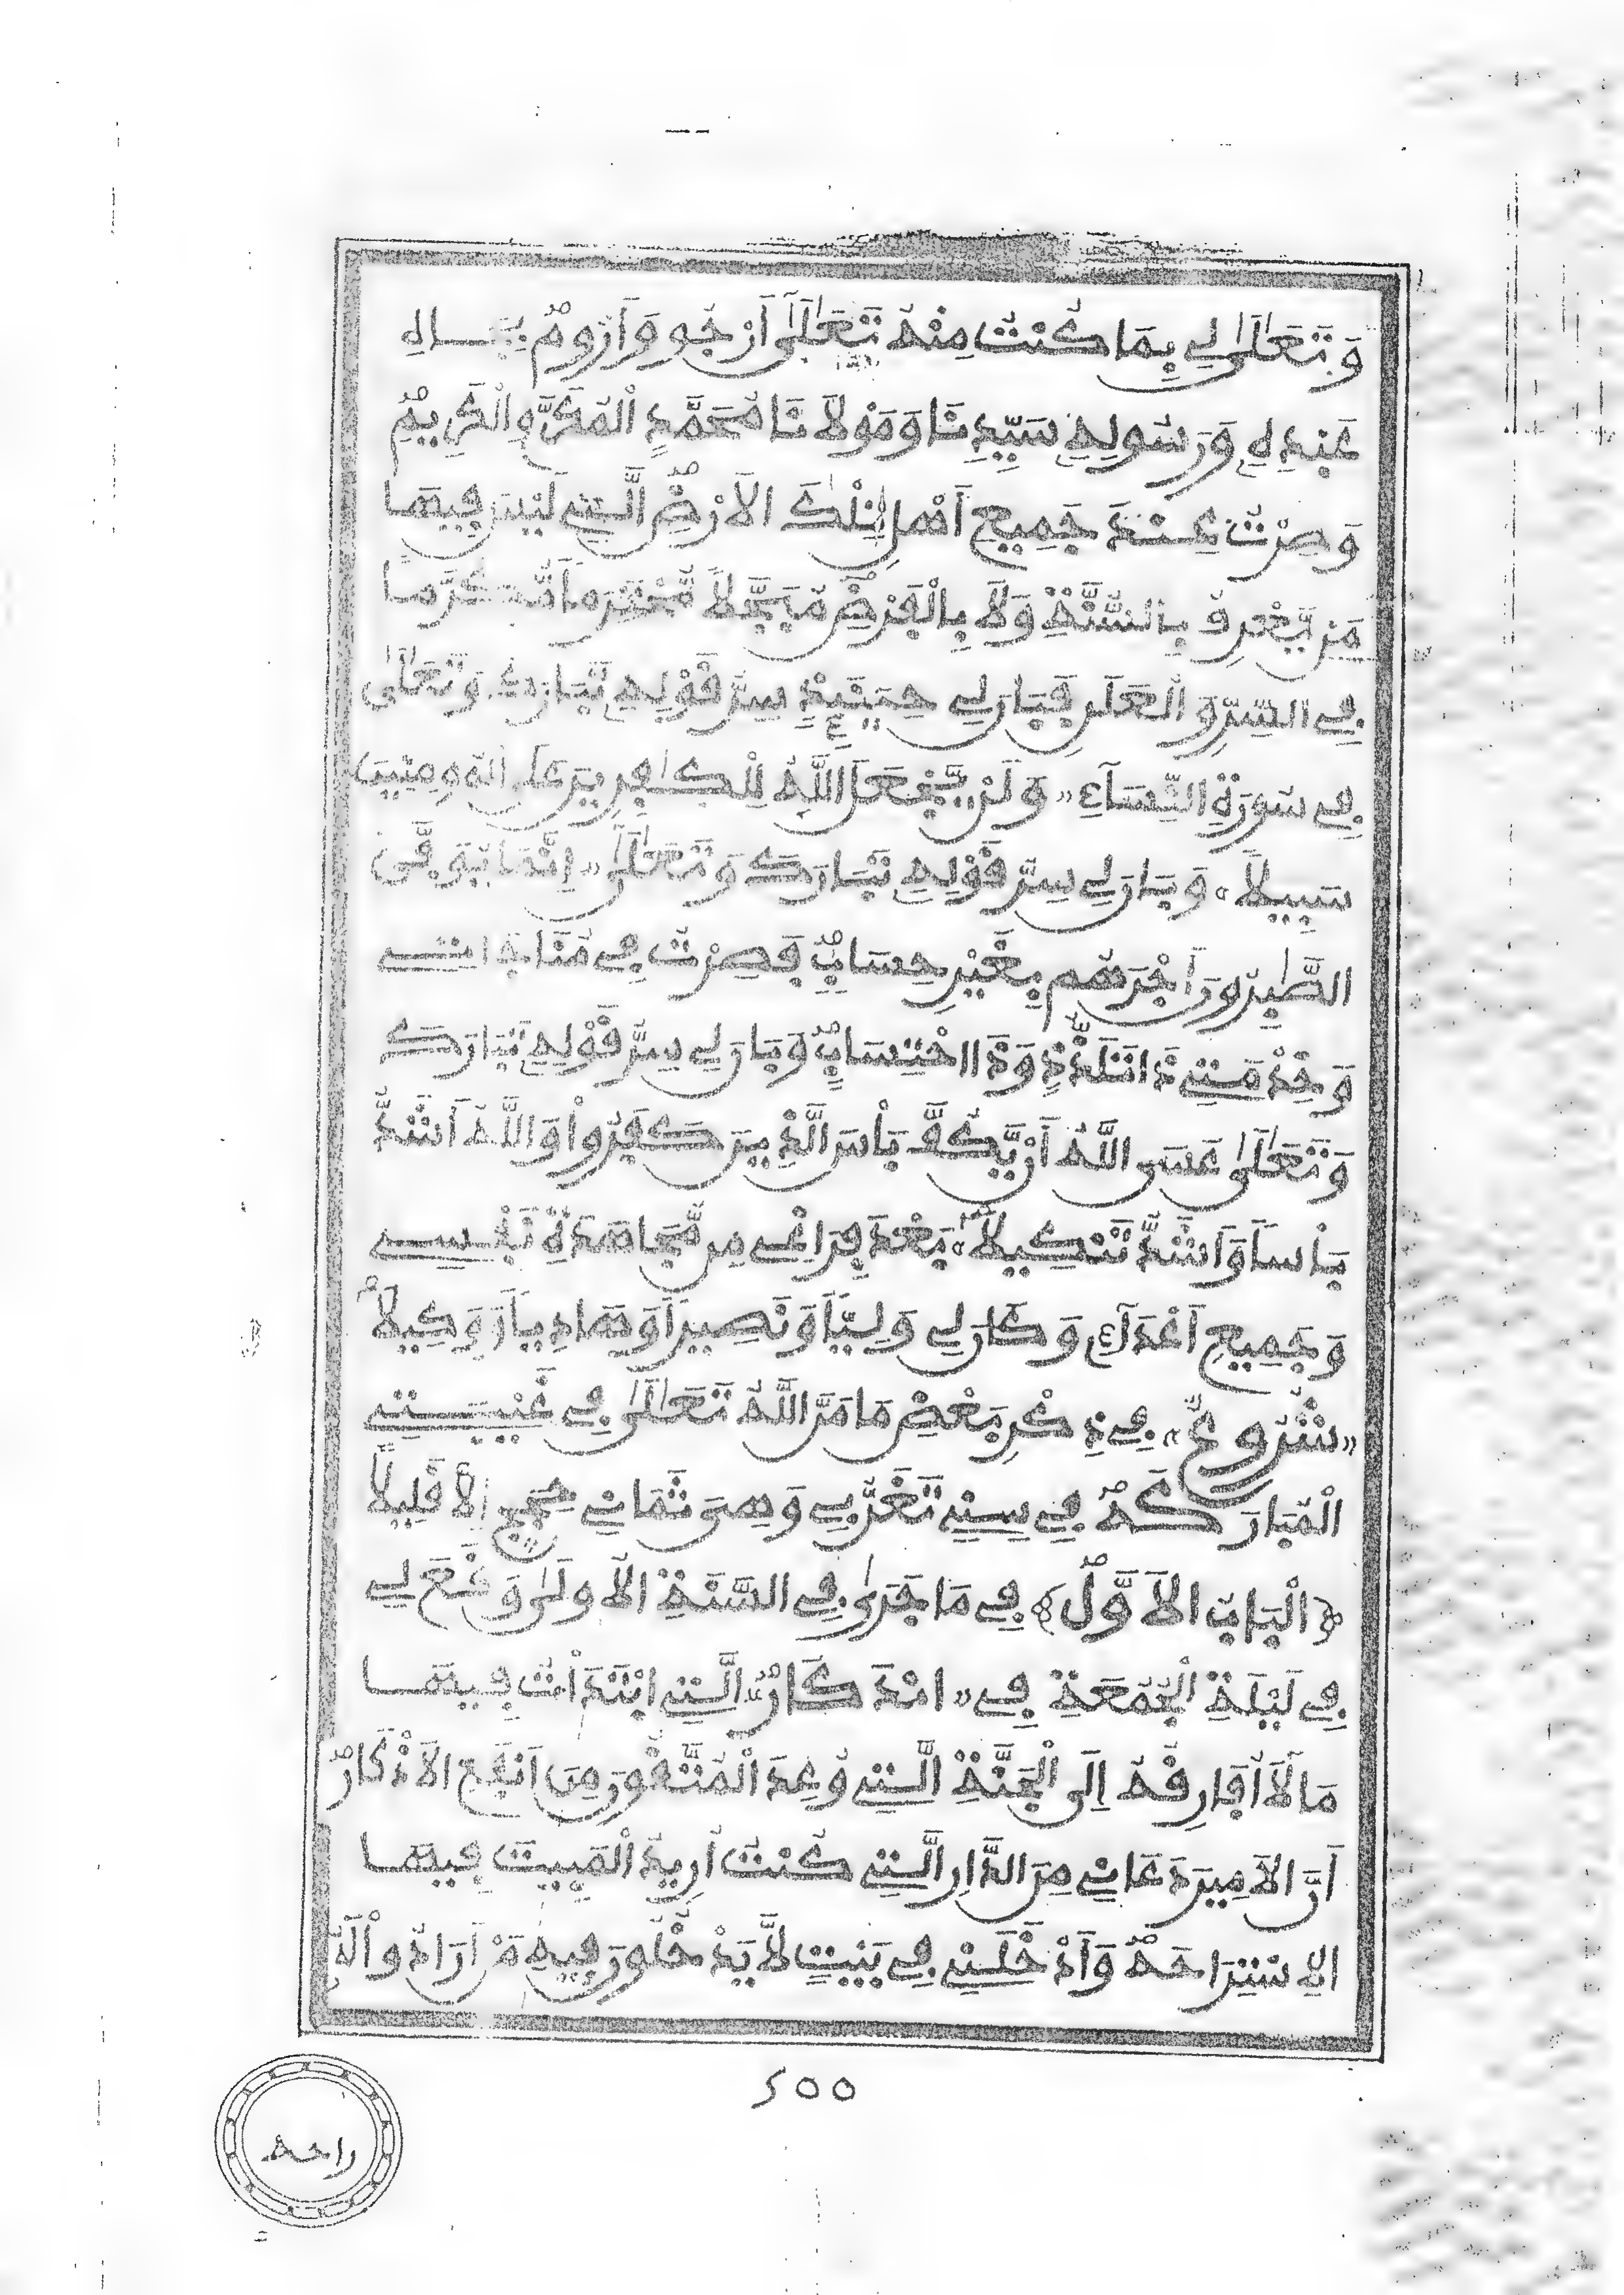 وَتَعَالَىٰ لِي بِمَا كُنْتُ مِنْهُ تَعَالَىٰ أَرْجُو وَأَرُومُ بِجَاهِ
عَبْدِهِ وَرَسُولِهِ سَيِّدِنَا وَمَوْلَانَا مُحَمَّدٍ الْمُكَرَّمِ الْكَرِيمِ
وَصِرْتُ عِنْدَ جَمِيعِ أَهْلِ تِلْكَ الْأَرْضِ الَّتِي لَيْسَ فِيهَا
مَنْ يَّعْرِفُ بِالسُّنَّةِ وَلَا بِالْفَرْضِ مُبَجَّلًا مُّحْتَرَمًا مُّكَرَّمًا
فِي السِّرِّ وَالْعَلَنِ فَبَانَ لِي حِينَئِذٍ سِرُّ قَوْلِهِ تَبَارَكَ وَتَعَالَىٰ
فِي سُورَةِ النِّسَآءِ «وَلَنْ يَّجْعَلَ اللَّهُ لِلْكَٰفِرِينَ عَلَى الْمُومِنِينَ
سَبِيلًا» وَبَانَ لِي سِرُّ قَوْلِهِ تَبَارَكَ وَتَعَالَىٰ «إِنَّمَا يُوَفَّى
الصَّٰبِرُونَ أَجْرَهُم بِغَيْرِ حِسَابٍ» فَصِرْتُ فِي مُنَاجَاتِي
وَخِدْمَتِي ذَا تَلَذُّذٍ وَذَا احْتِسَابٍ وَبَانَ لِي سِرُّ قَوْلِهِ تَبَارَكَ
وَتَعَالَىٰ عَسَى اللَّهُ أَنْ يَّكُفَّ بَأْسَ الَّذِينَ كَفَرُوا وَاللَّهُ أَشَدُّ
بَأْسًا وَأَشَدُّ تَنْكِيلًا» بَعْدَ فِرَاغِي مِن مُّجَاهَدَةِ نَفْسِي
وَجَمِيعِ أَعْدَآءِ وَكَانَ لِي وَلِيًّا وَنَصِيرًا وَهَادِيًا وَوَكِيلًا
«شُرُوعٌ» فِي ذِكْرِ بَعْضِ مَا مَنَّ اللَّهُ تَعَالَىٰ فِي غَيْبَتِي
الْمُبَارَكَةِ فِي سِنِي تَغَرُّبِي وَهِيَ ثَمَانِي حِجَجٍ إِلَّا قَلِيلًا
﴿الْبَابُ الْأَوَّلُ﴾ فِي مَا جَرَىٰ فِي السَّنَةِ الْأُولَىٰ وَقَعَ لِي
فِي لَيْلَةِ الْجُمُعَةِ فِي «انْدَكَارْ» الَّتِي ابْتَدَأْتُ فِيهَا
مَا لَا أُفَارِقُهُ إِلَى الْجَنَّةِ الَّتِي وُعِدَ الْمُتَّقُونَ مِنَ أَنْفَعِ الْأَذْكَارِ
أَنَّ الْأَمِيرَ دَعَانِي مِنَ الدَّارِ الَّتِي كُنْتُ أُرِيدُ الْمَبِيتَ فِيهَا
الِاسْتِرَاحَةُ وَأَدْخَلَنِي فِي بَيْتٍ لَّا يَدْخُلُونَ فِيهِ مَنْ أَرَادُوا لَهُ
٢٥٥
راحة